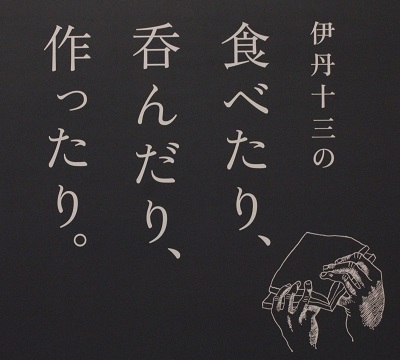 伊丹十三の
食べたり、
呑んだり、
作ったり。